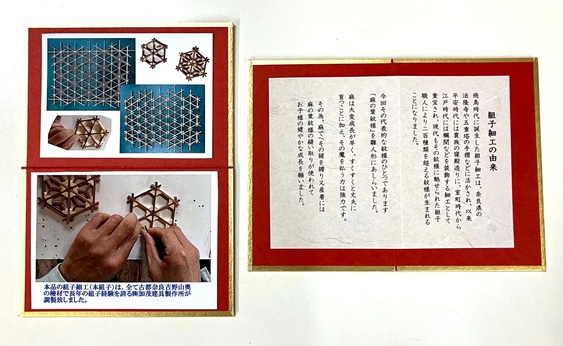 本品の組子細工(本組子)は、全て古都奈良吉野山奥
の檜材で長年の組子経験を誇る㈱加茂建具製作所が
調製致しました。
組子細工の由来
飛鳥時代に誕生した組子細工は、奈良県の
法隆寺や五重塔の手摺などに活かされ、以来
平安時代には貴族の寝殿造りに、室町時代から
江戸時代には欄間などを装飾する細工として
重宝され、現代もその紋様に魅せられた組子
職人により二百種類を超える紋様が生まれる
ことになりました。
今回その代表的な紋様のひとつであります
「麻の葉紋様」を雛人形にあしらいました。
麻は大変成長が早く、すくすくと丈夫に
育つことに加え、その魔を払う力は強力です。
その為、麻で、その紐を縛り、又産着には
麻の葉紋様の縫い取りが使われて
お子様の健やかな成長を願いました。